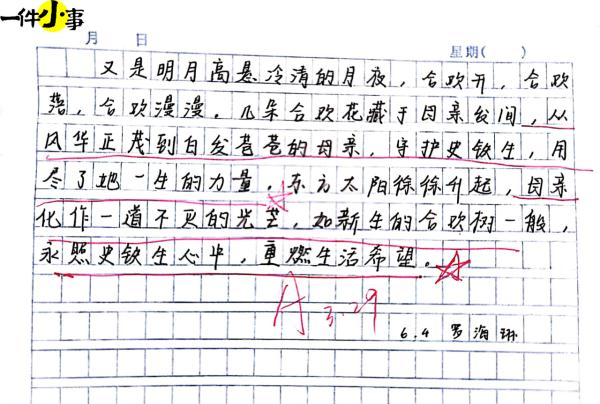 一件小事
月 日 星期( )
又是明月高悬冷清的月夜，合欢开，合欢
落，合欢漫漫。几朵合欢花藏于母亲发间，从
风华正茂到白发苍苍的母亲，守护史铁生，用
尽了她一生的力量。东方太阳徐徐升起，母亲
化作一道不灭的光芒，如新生的合欢树一般，
永照史铁生心中，重燃生活希望。
A 3.29
6.4 罗海琳